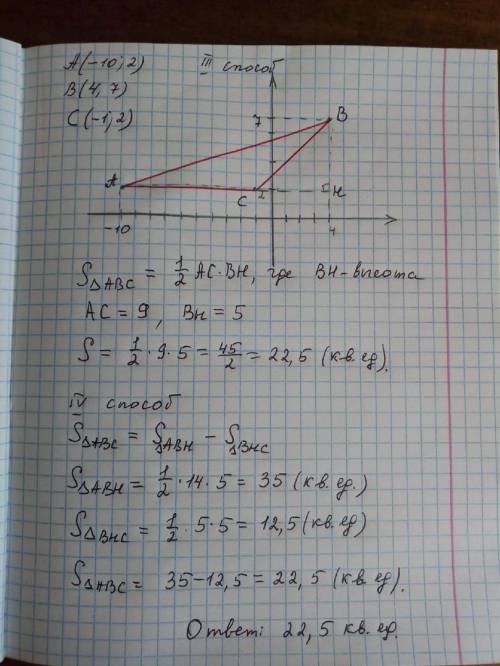 A(-10; 2)
III способ
B(4, 7)
C(-1; 2)
7
B
A
C
2
H
-10
4
S△ABC = 1/2 AC·BH, где BH - высота
AC = 9, BH = 5
S = 1/2 · 9 · 5 = 45/2 = 22,5 (кв. ед).
IV способ
S△ABC = S△ABH - S△BHC
S△ABH = 1/2 · 14 · 5 = 35 (кв. ед.)
S△BHC = 1/2 · 5 · 5 = 12,5 (кв. ед)
S△ABC = 35 - 12,5 = 22,5 (кв. ед).
Ответ: 22,5 кв. ед.